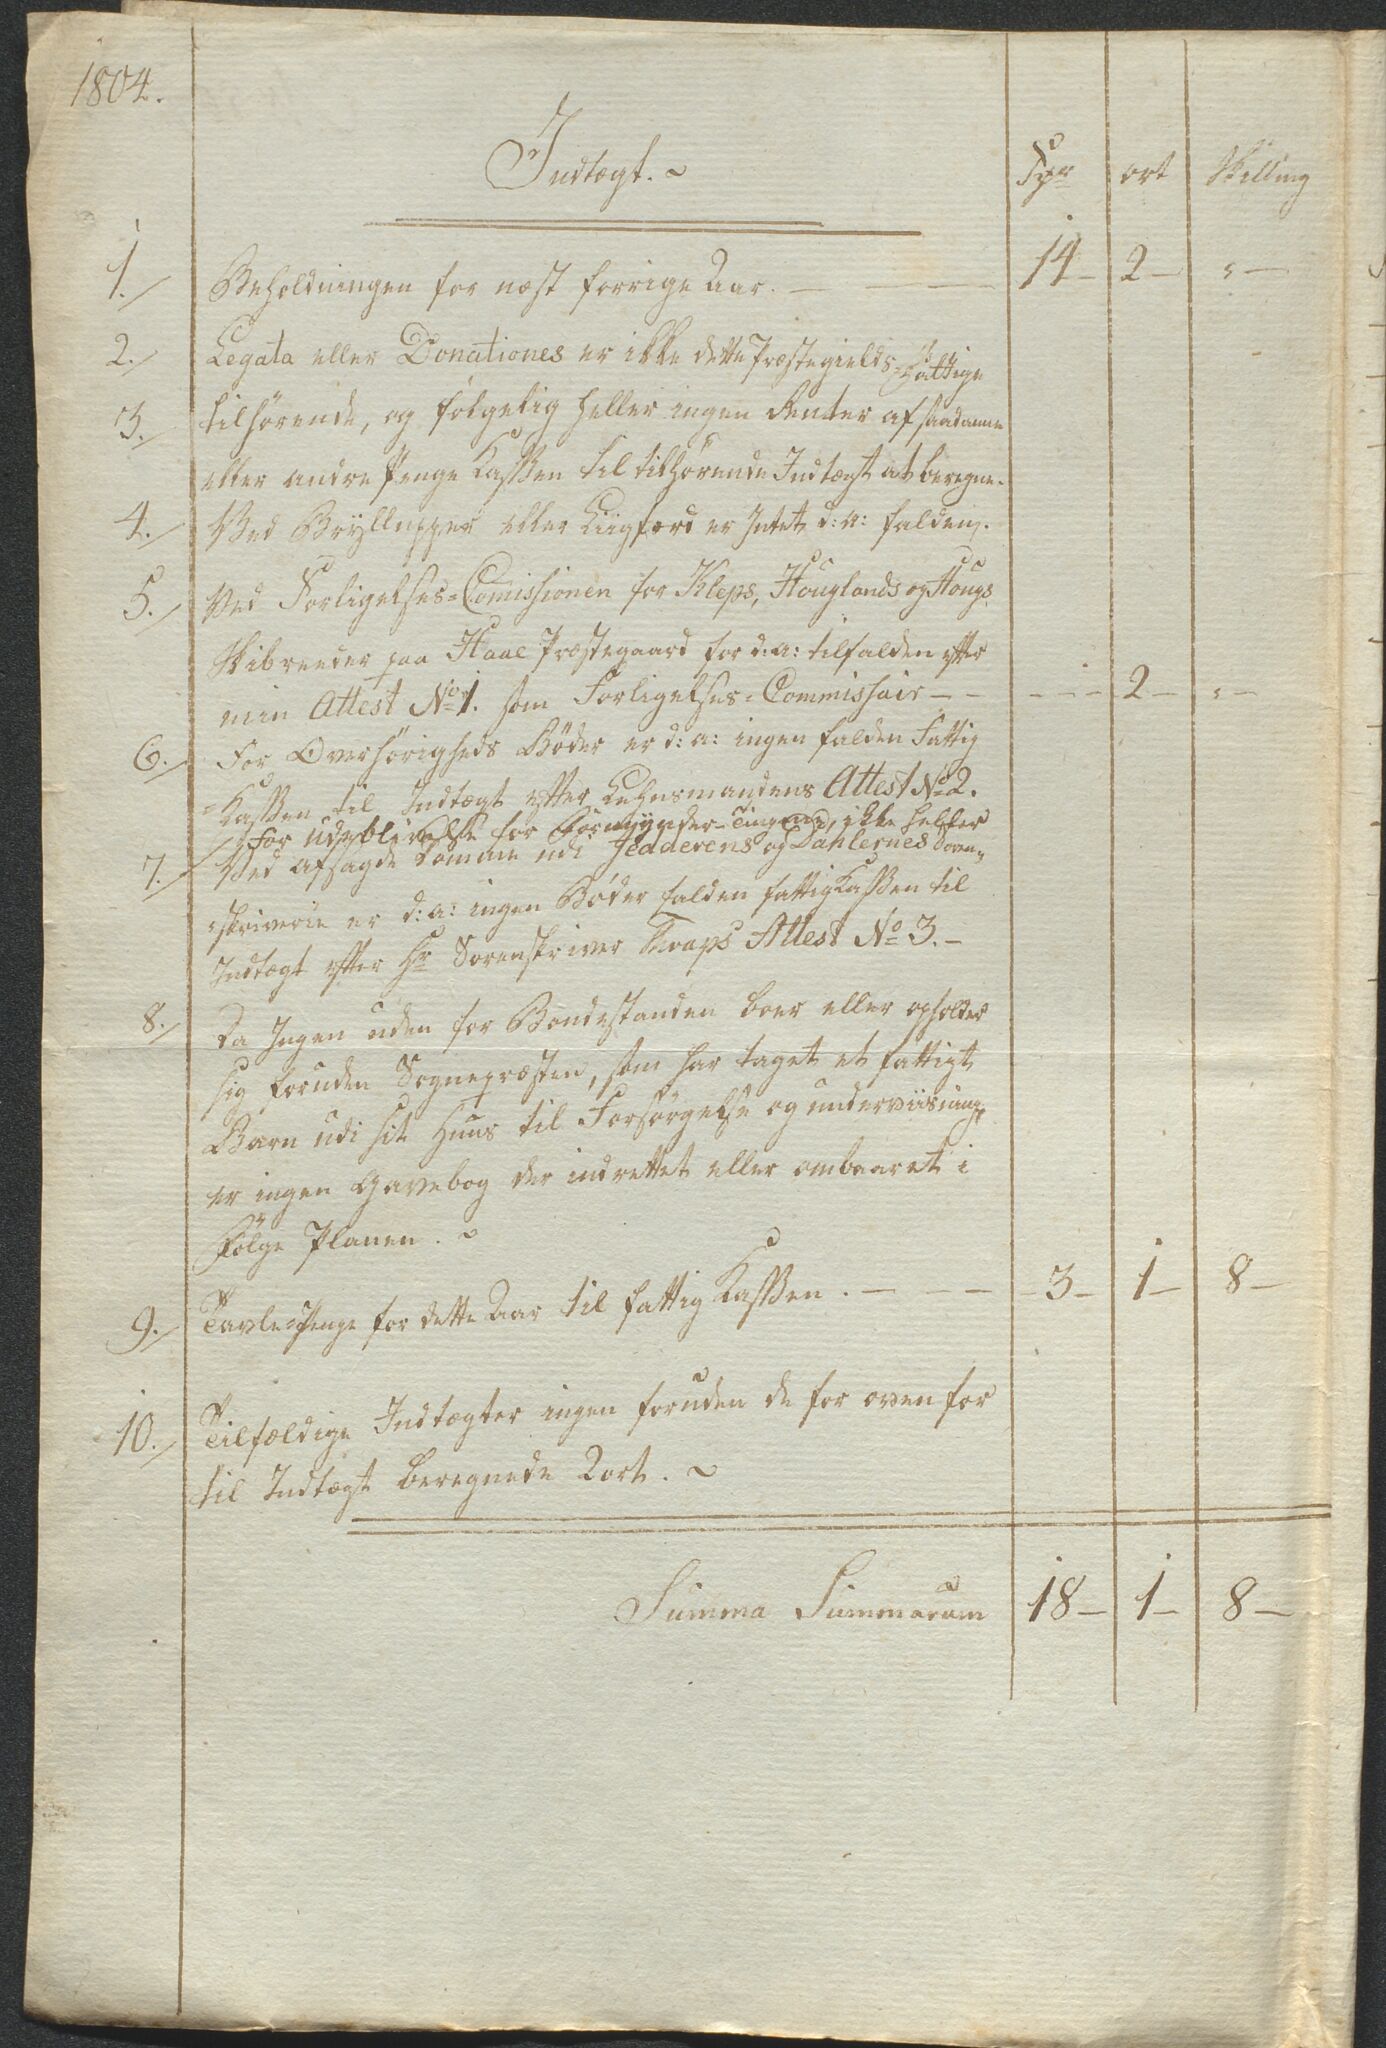 1804.
Indtægt.
Spr ort Skilling
1. Beholdningen for næst forrige Aar. — 14 — 2 — " —
2. Legata eller Donationes er ikke dette Præstegields Fattige
3. tilhörende, og fölgelig heller ingen Renter af saadanne
eller andre Penge Kassen til tilhörende Indtægt at beregne.
4. Ved Bryllupper eller Liigfærd er Intet d: a: falden.
5. Ved Forligelses=Comissionen for Kleps, Houglands og Hougs
Skibreeder paa Haae Præstegaard for d: a: tilfalden efter
min Attest No 1. som Forligelses=Commissair — — — 2 — " —
6. For Overhörigheds Böder er d: a: ingen falden Fattig
=Kassen til Indtægt efter Lehnsmandens Attest No 2.
for udeblivelse for Formynder-Tingene, ikke heller
7. Ved afsagde Domme udi Jedderens og Dahlernes Soren=
=skriverie er d: a: ingen Böder falden fattig Kassen til
Indtægt efter Hr Sorenskriver Knaps Attest No 3. —
8. Da Ingen uden for Bondestanden boer eller opholder
sig foruden Sognepræsten, som har taget et fattigt
Barn udi sit Huus til Forsörgelse og underviisning,
er ingen Gavebog der indrettet eller ombaaret i
Fölge Planen.
9. Tavle=Penge for dette Aar til fattig Kassen. — — — 3 — 1 — 8 —
10. Tilfældige Indtægter ingen foruden de for oven for
til Indtægt beregnede 2 ort.
Summa Summarum 18 — 1 — 8 —